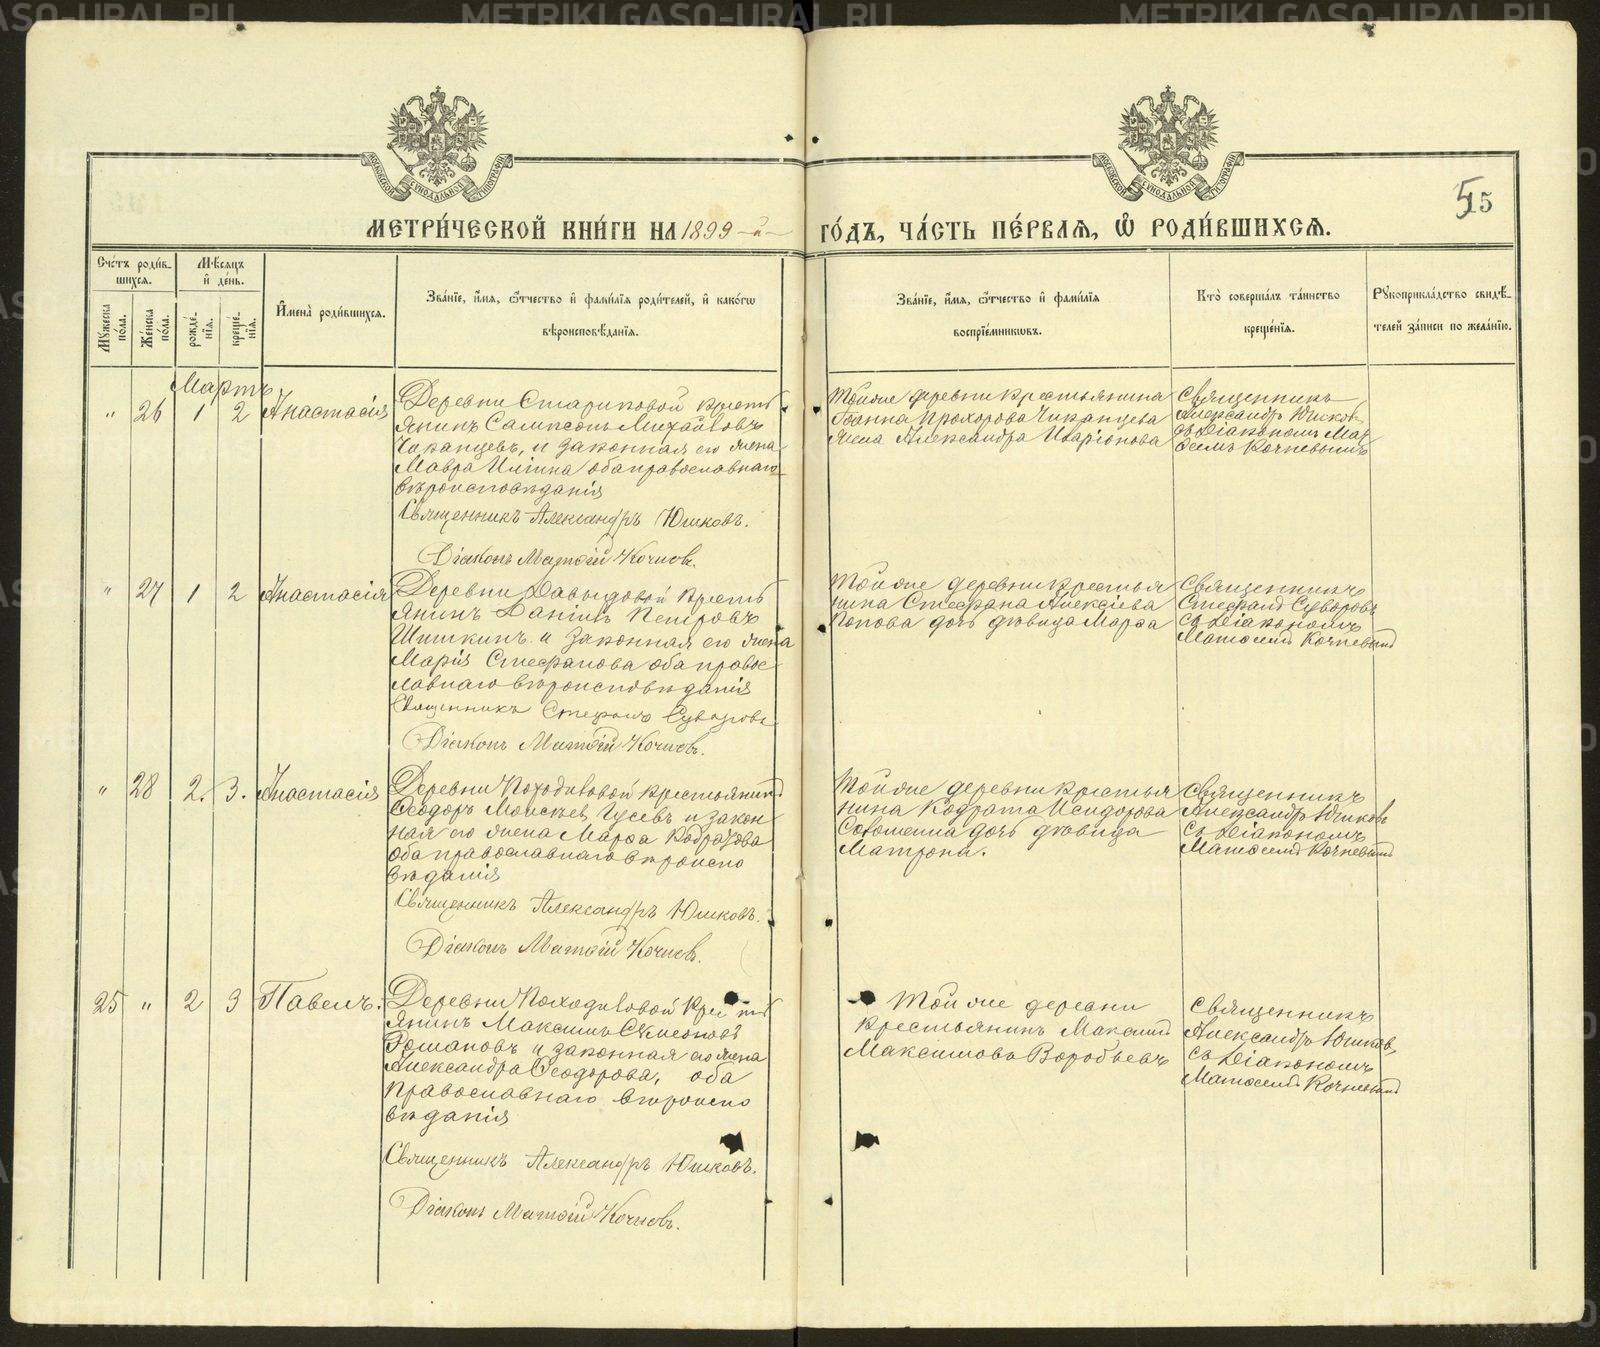 МЕТРИ́ЧЕСКОЙ КНИ́ГИ НА 1899-й
ГО́ДЪ, ЧА́СТЬ ПЕ́РВАЯ, Ѡ РОДИ́ВШИХСЯ.
515
Сче́тъ роди́в-
шихся.
Мѣ́сяцъ
и҆ де́нь.
Мꙋ́жеска
по́ла.
Же́нска
по́ла.
рожде́-
нїѧ.
креще́-
нїѧ.
И҆мена̀ роди́вшихсѧ.
Зва́нїе, и҆́мѧ, ѻ҆́тчество и҆ фами́лїѧ роди́телей, и҆ како́гѡ
вѣроисповѣ́данїѧ.
Зва́нїе, и҆́мѧ, ѻ҆́тчество и҆ фами́лїѧ
воспрїе́мникѡвъ.
Кто̀ соверша́лъ та́инство
креще́нїѧ.
Рꙋкоприкла́дство свидѣ́-
телей за́писи по жела́нїю.
Мартъ
" 26 1 2 Анастасія
Деревни Стариковой кресть
янинъ Сампсонъ Михайловъ
Чиканцевъ, и законная его жена
Мавра Иліина оба православнаго
вѣроисповѣданія
Священникъ Александръ Юшковъ.
Діаконъ Матѳій Кочневъ.
Той же деревни крестьянина
Іоанна Прохорова Чиканцева
жена Александра Иларіонова
Священникъ
Александръ Юшков
съ Діакономъ Мат
ѳемъ Кочневымъ
" 27 1 2 Анастасія
Деревни Давыдовой кресть
янинъ Даніилъ Петровъ
Шишкинъ и законная его жена
Марія Стефанова оба правос
лавнаго вѣроисповѣданія
Священникъ Стефанъ Суворовъ
Діаконъ Матѳій Кочневъ.
Той же деревни крестья
нина Стефана Алексіева
Попова дочь дѣвица Марѳа
Священникъ
Стефанъ Суворовъ
съ Діакономъ
Матѳемъ Кочневымъ
" 28 2. 3. Анастасія
Деревни Походиловой крестьянинъ
Ѳеодоръ Моисѣевъ Гусевъ и закон
ная его жена Марѳа Кодратова
оба православнаго вѣроиспо
вѣданія
Священникъ Александръ Юшковъ.
Діаконъ Матѳій Кочневъ.
Той же деревни крестья
нина Кодрата Исидорова
дочь дѣвица
Матрона.
Священникъ
Александръ Юшковъ
съ Діакономъ
Матѳемъ Кочневымъ
25 " 2 3 Павелъ.
Деревни Походиловой кресть
янинъ Максимъ Симеоновъ
Романовъ и законная его жена
Александра Ѳеодорова, оба
православнаго вѣроиспо
вѣданія
Священникъ Александръ Юшковъ.
Діаконъ Матѳій Кочневъ.
Той же деревни
крестьянинъ Максимъ
Максимовъ Воробьевъ
Священникъ
Александръ Юшковъ,
съ Діакономъ
Матѳемъ Кочневымъ